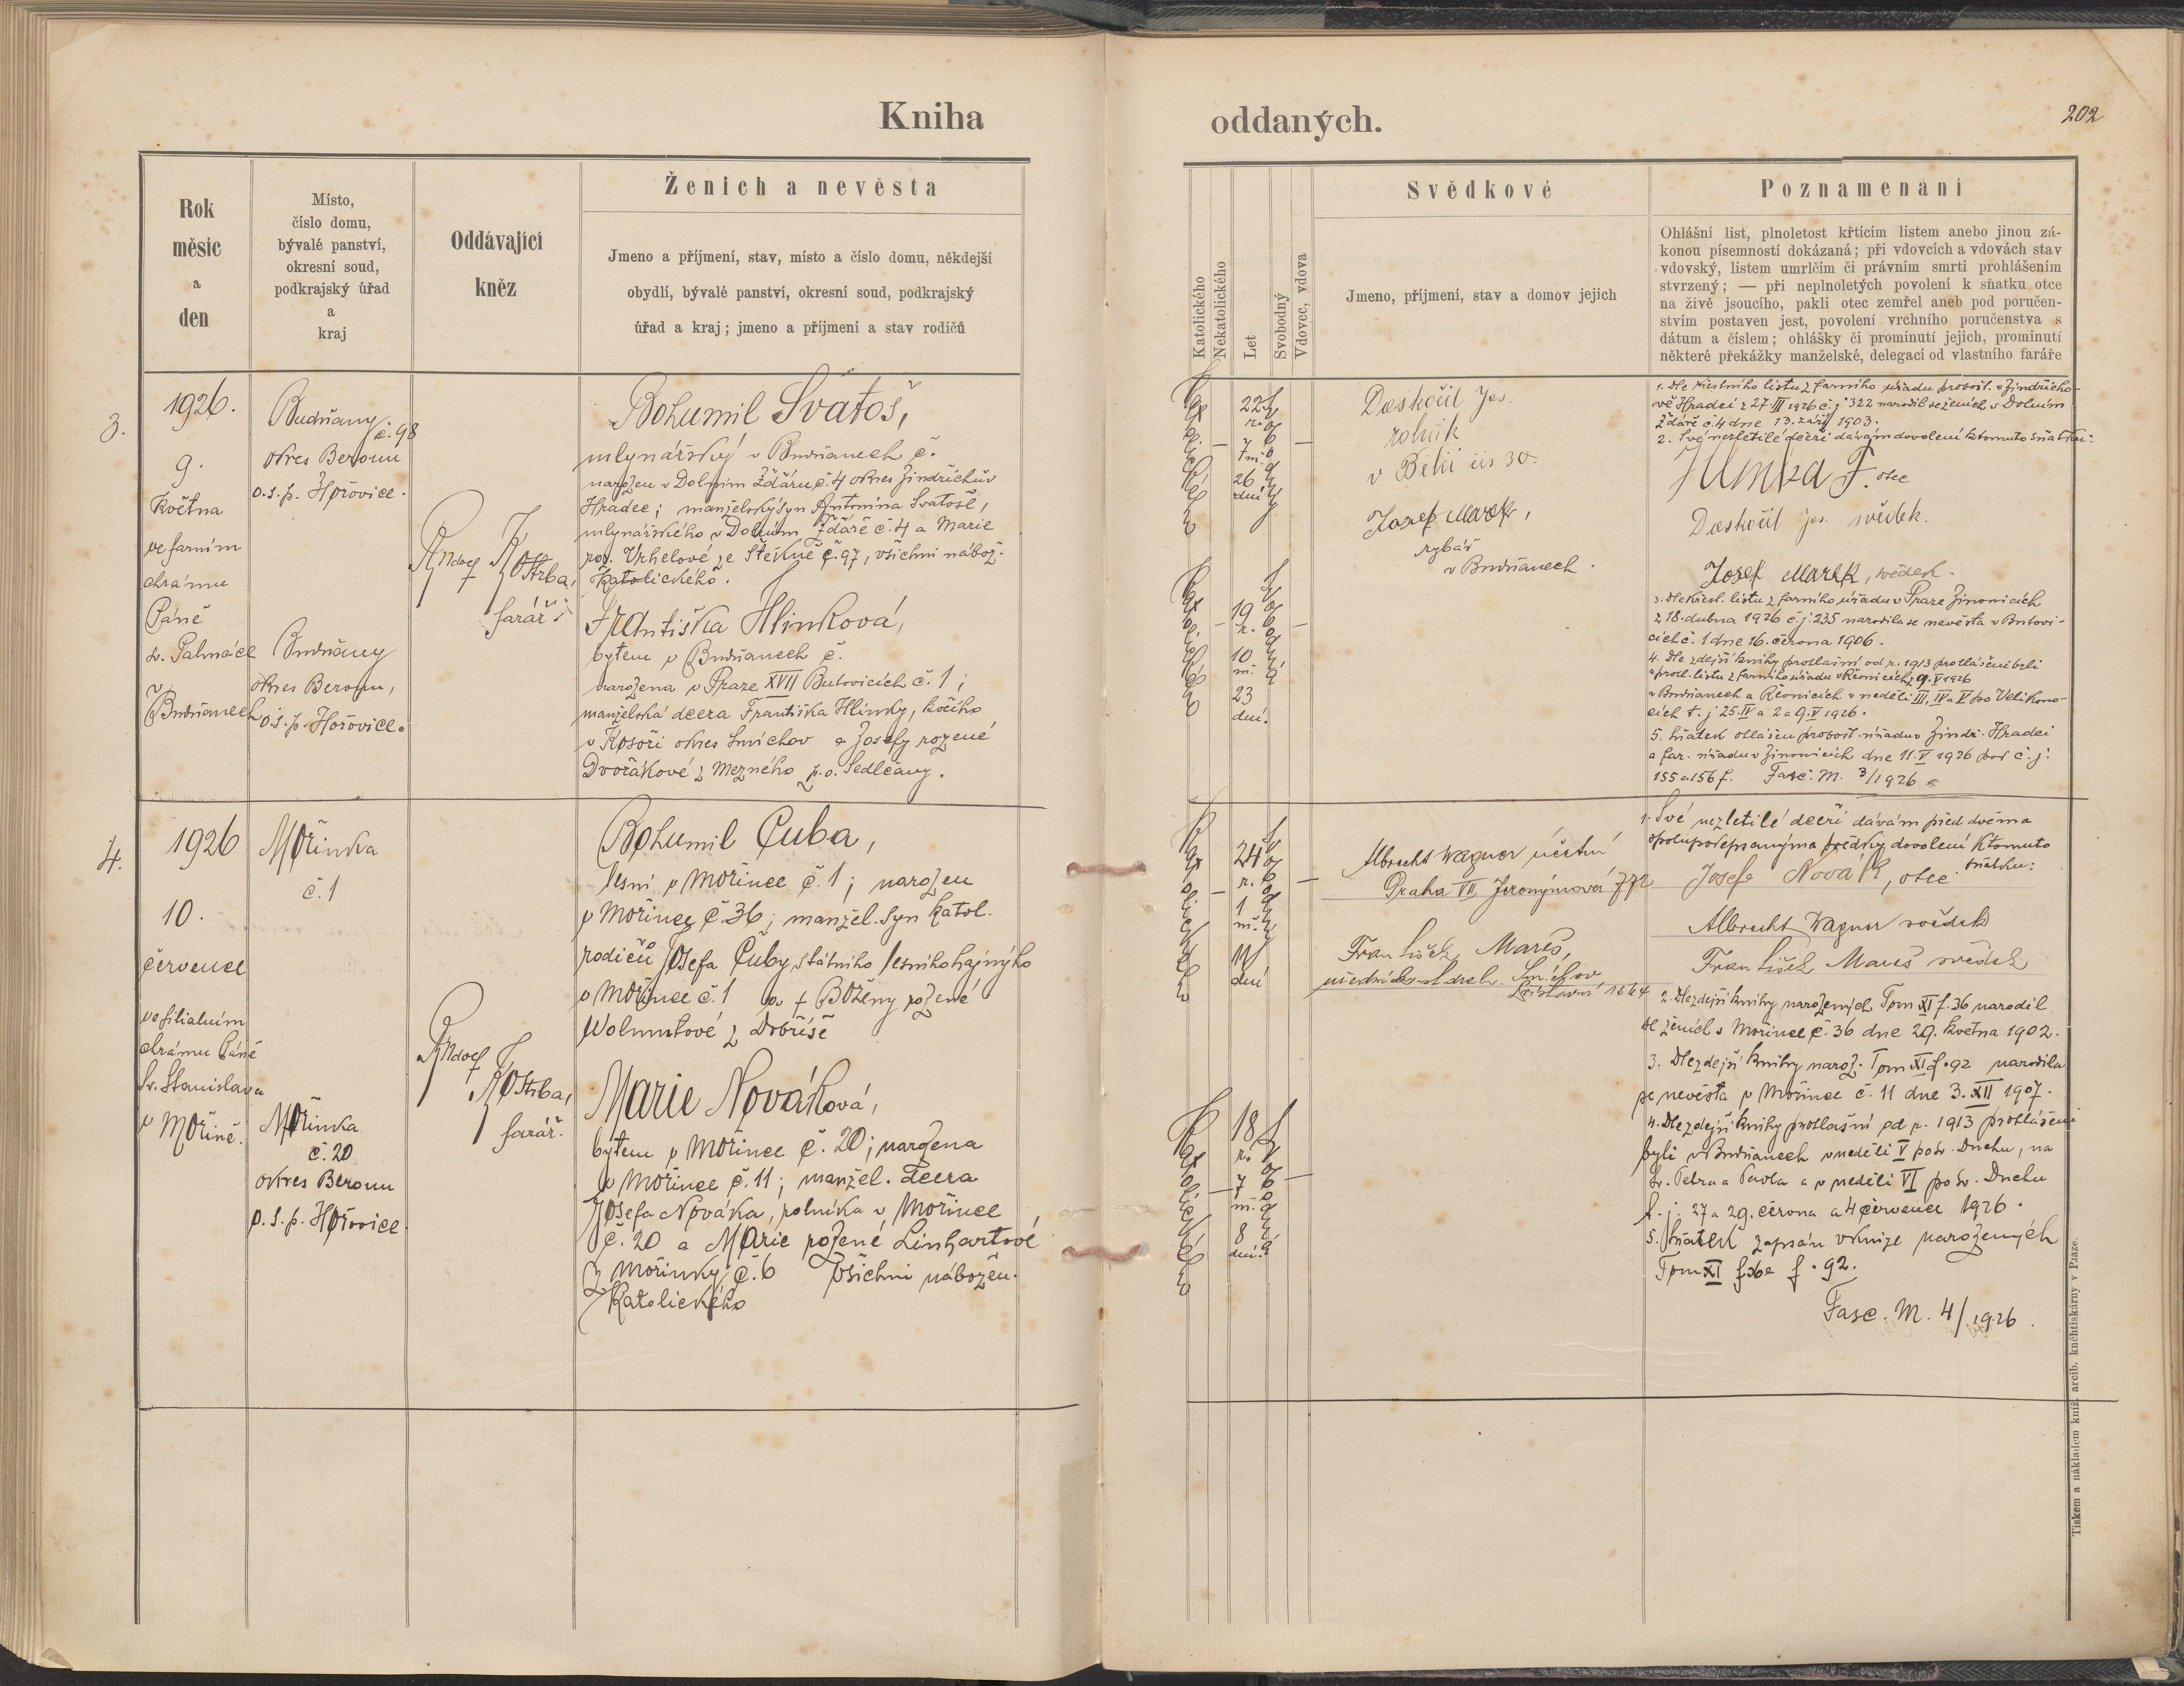 Kniha
Rok
měsíc
a
den
Místo,
číslo domu,
bývalé panství,
okresní soud,
podkrajský úřad
a
kraj
Oddávající
kněz
Ženich a nevěsta
Jmeno a příjmení, stav, místo a číslo domu, někdejší
obydlí, bývalé panství, okresní soud, podkrajský
úřad a kraj; jmeno a příjmení a stav rodičů
3.
1926.
9.
května
ve farním
chrámu
Páně
sv. Palmáce
v
Budňanech
Budňany
č. 98
okres Beroun
o.s.p. Hořovice.
Budňany
okres Beroun,
o.s.p. Hořovice.
Rudolf Kostrba,
farář.
Bohumil Svatoš,
mlynářský v Budňanech č.
narozen v Dolním Žďáru č. 4 okres Jindřichův
Hradec; manželský syn Antonína Svatoše,
mlynářského v Dolním Žďáře č. 4 a Marie
roz. Vrhelové ze Štěkně č. 97, všichni nábož.
katolického.
Františka Hlinková,
bytem v Budňanech č.
narozena v Praze XVII Butovicích č. 1;
manželská dcera Františka Hlinky, kočího
v Kosoři okres Smíchov a Josefy rozené
Dvořákové z Mezného p.o. Sedlčany.
4.
1926
10.
července
ve filialním
chrámu Páně
sv. Stanislava
v Mořině.
Mořinka
č. 1
Mořinka
č. 20
okres Beroun
o.s.p. Hořovice.
Rudolf
Kostrba,
farář.
Bohumil Čuba,
lesní v Mořince č. 1; narozen
v Mořince č. 36; manžel. syn katol.
rodičů Josefa Čuby, státního lesního hajného
v Mořince č. 1 a † Boženy rozené
Wolmutové z Dobříše
Marie Nováková,
bytem v Mořince č. 20; narozena
v Mořince č. 11; manžel. dcera
Josefa Nováka, rolníka v Mořince
č. 20 a Marie rozené Linhartové
z Mořinky č. 6 všichni nábožen.
katolického
oddaných.
202
Katolického
Nekatolického
Let
Svobodný
Vdovec, vdova
Svědkové
Jmeno, příjmení, stav a domov jejich
Poznamenání
Ohlášní list, plnoletost křtícím listem anebo jinou zá-
konou písemností dokázaná; při vdovcích a vdovách stav
vdovský, listem umrlčím či právním smrti prohlášením
stvrzený; — při neplnoletých povolení k sňatku otce
na živě jsoucího, pakli otec zemřel aneb pod poručen-
stvím postaven jest, povolení vrchního poručenstva s
dátum a číslem; ohlášky či prominutí jejich, prominutí
některé překážky manželské, delegací od vlastního faráře
katolické
22
r.
7
m.
26
dní
svobodný
Doskočil Jos.
rolník
v Běleči čís 30.
Josef Marek,
rybář
v Budňanech.
katolické
19
r.
10
m.
23
dní.
svobodná
1. Dle křestního listu z farního úřadu probošt. v Jindřicho-
vě Hradci z 27. III 1926 č.j. 322 narodil se ženich v Dolním
Žďáře č. 4 dne 13. září 1903.
2. Své nezletilé dceři dávám dovolení k tomuto sňatku:
Hlinka F. otec
Doskočil Jos. svědek.
Josef Marek, svědek.
3. Dle křest. listu z farního úřadu v Praze Jinonicích
z 18. dubna 1926 č.j. 235 narodila se nevěsta v Butovi-
cích č. 1 dne 16. června 1906.
4. Dle zdejší knihy prohlašní od r. 1913 prohlášeni byli
a prohl. listu z farního úřadu v Řevnicích z 9. V 1926
v Budňanech a Řevnicích v neděli III, IV a V po Velikono-
cích t. j. 25. IV a 2 a 9. V 1926.
5. Sňatek ohlášen probošt. úřadu v Jindř. Hradci
a far. úřadu v Jinonicích dne 11. V 1926 pod č. j.
155 a 156 f. Fasc. M. 3/1926
katolické
24
r.
1
m.
11
dní
svobodný
Albrecht Wagner účetní
Praha VII Jeronýmova 772
František Mareš,
úředník st. drah. Smíchov
1564
katolické
18
r.
7
m.
8
dní.
svobodná
1. Své nezletilé dceři dávám před dvěma
spolupodepsanýma svědky dovolení k tomuto
sňatku:
Josef Novák, otec
Albrecht Wagner svědek
František Mareš svědek
2. Dle zdejší knihy narozených Tom XI f. 36 narodil
se ženich v Mořince č. 36 dne 29. května 1902.
3. Dle zdejší knihy naroz. Tom XI f. 92 narodila
se nevěsta v Mořince č. 11 dne 3. XII 1907.
4. Dle zdejší knihy prohlašní od r. 1913 prohlášeni
byli v Budňanech v neděli V po sv. Duchu, na
sv. Petra a Pavla a v neděli VI po sv. Duchu
t. j. 27 a 29. června a 4 července 1926.
5. Sňatek zapsán v knize narozených
Tom XI f. 36 a f. 92.
Fasc. M. 4/1926.
Tiskem a nákladem kníž. arcib. knihtiskárny v Praze.